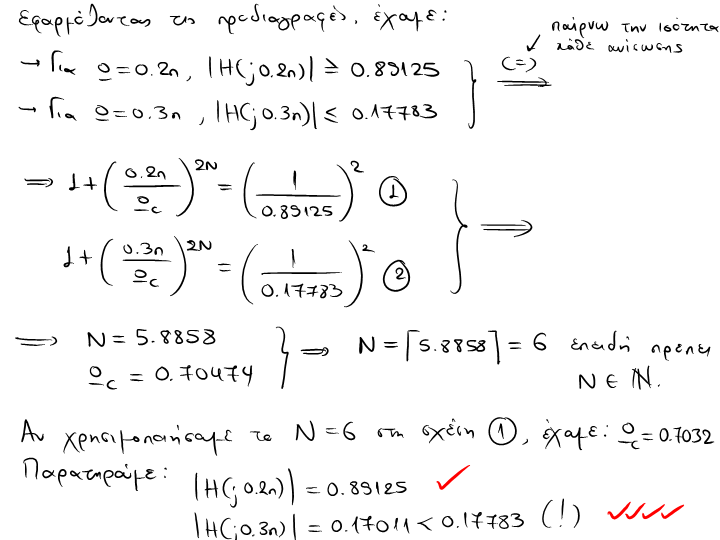 Εφαρμόζοντας τις προδιαγραφές, έχομε:
παίρνω την ισότητα
κάθε ανίσωσης
→ Για Ω=0.2π, |H(j0.2π)| ≥ 0.89125
(=)
⟹
→ Για Ω=0.3π, |H(j0.3π)| ≤ 0.17783
⟹ 1+(0.2π/Ωc)^2N = (1/0.89125)^2 ①
1+(0.3π/Ωc)^2N = (1/0.17783)^2 ② ⟹
⟹ N = 5.8858
Ωc = 0.70474
⟹ N = ⌈5.8858⌉ = 6 επειδή πρέπει
N ∈ ℕ.
Αν χρησιμοποιήσομε το N=6 στη σχέση ①, έχομε: Ωc = 0.7032
Παρατηρούμε:
|H(j0.2π)| = 0.89125 ✓
|H(j0.3π)| = 0.17011 < 0.17783 (!) ✓✓✓✓